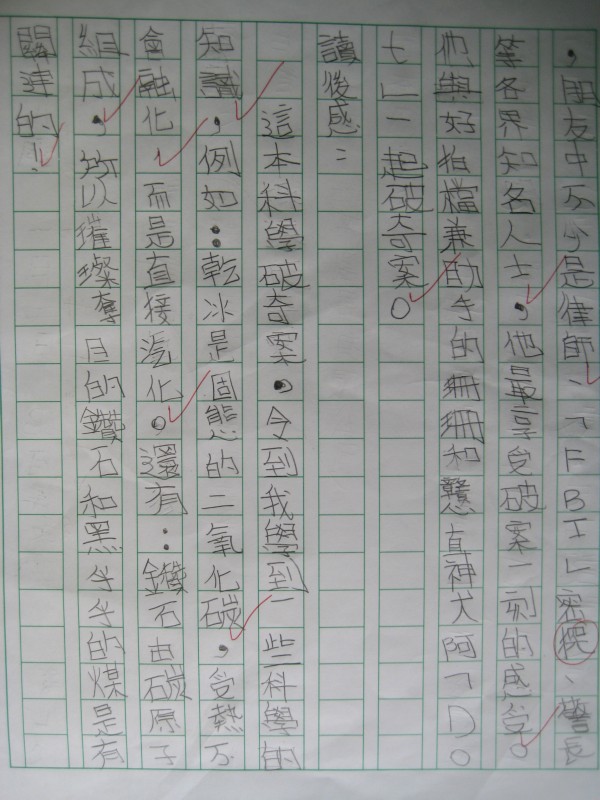 ，朋友中不少是律師、「FBI」密探、警長
等各界知名人士，他最享受破案一刻的感受。
他與好拍檔兼助手的珊珊和戇直神犬阿「D。
七」一起破奇案。
讀後感：
這本科學破奇案。令到我學到一些科學的
知識，例如：乾冰是固態的二氧化碳，受熱不
會融化，而是直接汽化。還有：鑽石由碳原子
組成，所以摧璨奪目的鑽石和黑乎乎的煤是有
關連的！